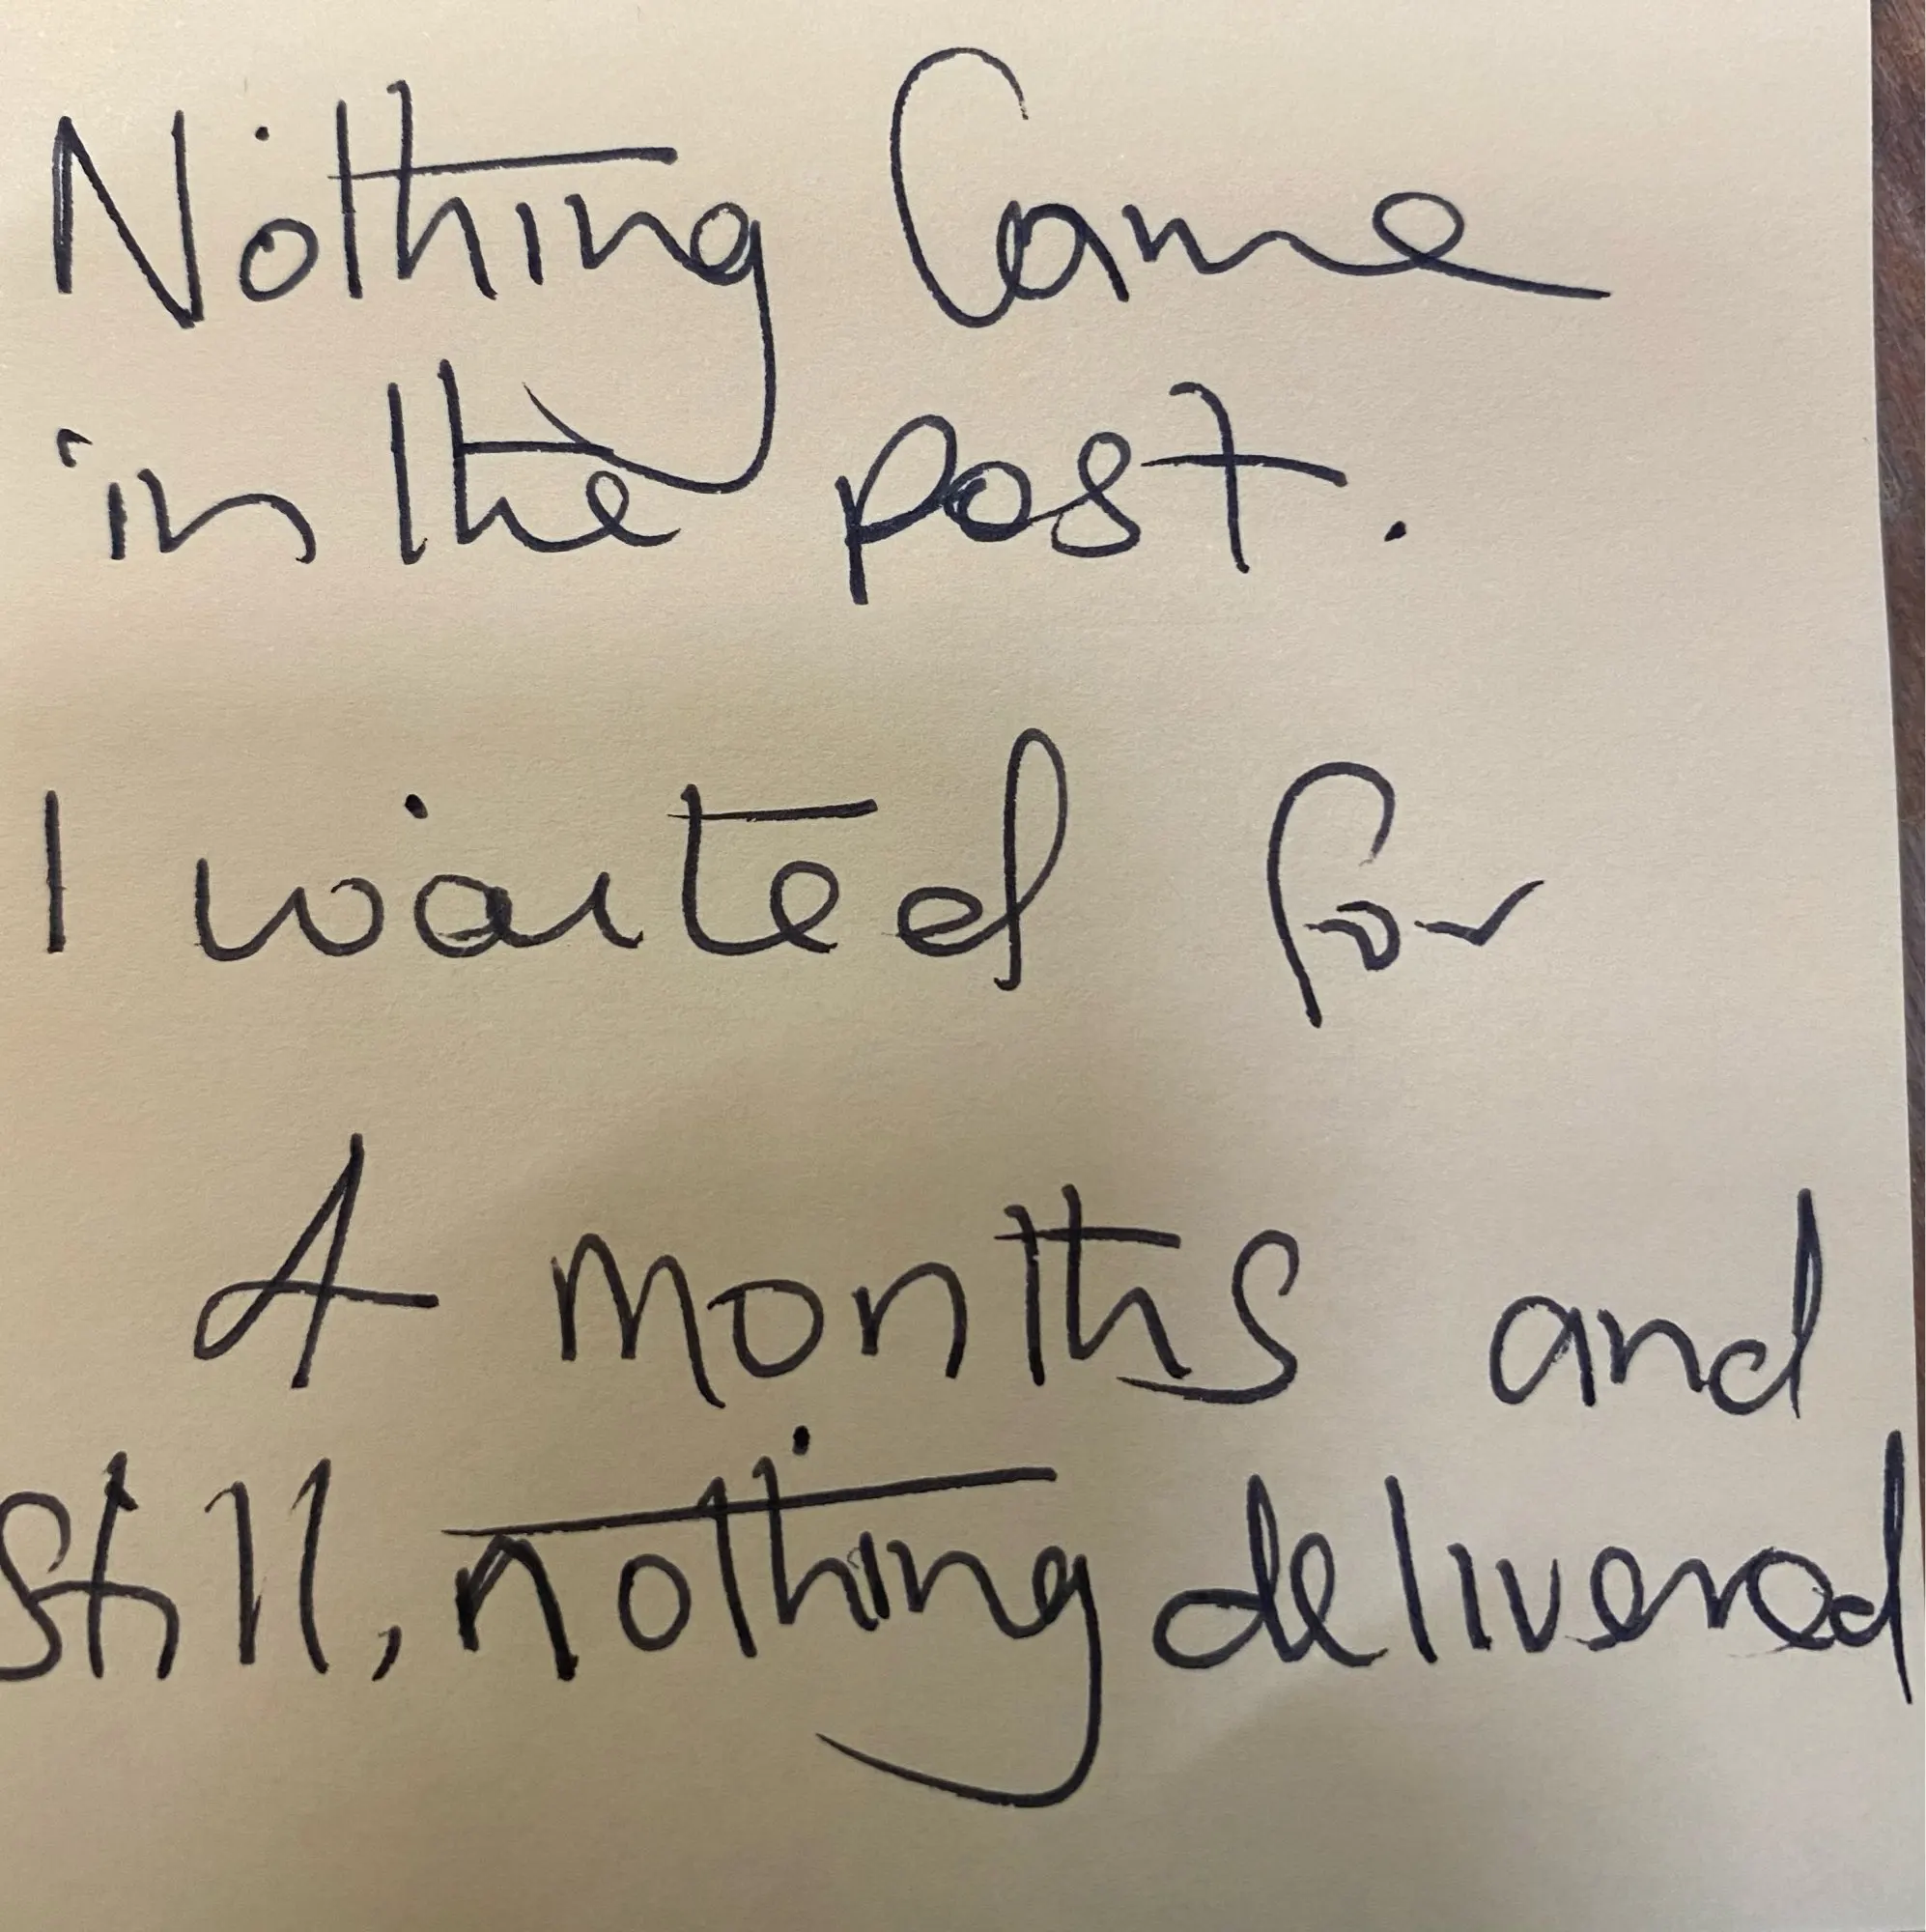 Nothing Came
in the post.
I waited for
4 months and
still, nothing delivered